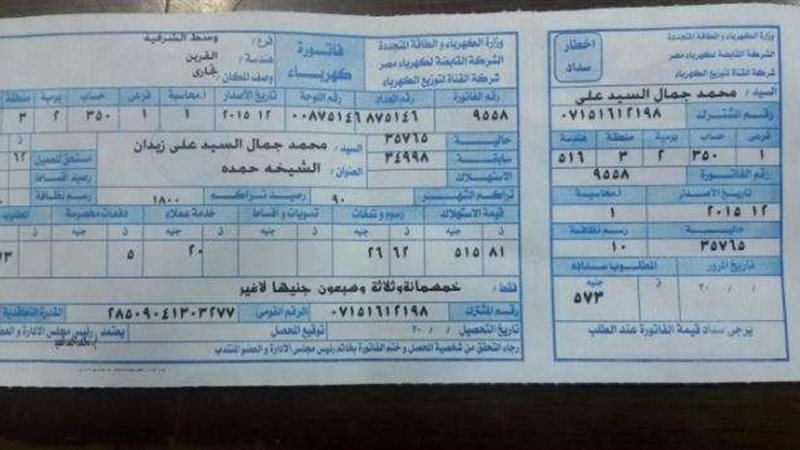 اخطار سداد
وزارة الكهرباء و الطاقة المتجددة
الشركة القابضة لكهرباء مصر
شركة القناة لتوزيع الكهرباء
السيد / محمد جمال السيد على
رقم المشترك ٠٧١٥١٦١٢١٩٨
فرعى حساب يومية منطقة هندسة
١ ٣٥٠ ٢ ٣ ٥١٦
رقم الفاتورة
٩٥٥٨
تاريخ الاصدار ا.محاسبة
١٢ ٢٠١٥ ١
حالية رسم نظافة
٣٥٧٦٥ ١٠
تاريخ المرور المطلوب سداده
/ / ٢٠ ق جنيه
٥٧٣
يرجى سداد قيمة الفاتورة عند الطلب
وزارة الكهرباء و الطاقة المتجددة
الشركة القابضة لكهرباء مصر
شركة القناة لتوزيع الكهرباء
فاتورة كهرباء
فرع / وسط الشرقية
هندسة / القرين
وصف المكان تجارى
رقم الفاتورة رقم العداد رقم اللوحة تاريخ الاصدار ا.محاسبة فرعى حساب يومية منطقة
٩٥٥٨ ٨٧٥١٤٦ ٠٠٨٧٥١٤٦ ١٢ ٢٠١٥ ١ ١ ٣٥٠ ٢ ٣
حالية ٣٥٧٦٥ السيد / محمد جمال السيد على زيدان
سابقة ٣٤٩٩٨ العنوان / الشيخه حمده
الاستهلاك
تراكم الشهر ٩٠ رصيد تراكم ١٨٠٠ رسم نظافة
رصيد أقساط
قيمة الاستهلاك رسوم و تمغات تسويات و أقساط خدمة عملاء دفعات مخصومة المطلوب
ق جنيه ق جنيه ق جنيه ق جنيه ق جنيه ق
٨١ ٥١٥ ٦٢ ٢٦ ٢٠ ٥ ٧٣
فقط / خمسمائة وثلاثة وسبعون جنيها لاغير
رقم المشترك ٠٧١٥١٦١٢١٩٨ الرقم القومى ٢٨٥٠٩٠٤١٣٠٣٢٧٧ القدرة التعاقدية
تاريخ التحصيل / / ٢٠ توقيع المحصل يعتمد رئيس مجلس الادارة و العضو
رجاء التحقق من شخصية المحصل و ختم الفاتورة بخاتم رئيس مجلس الادارة و العضو المنتدب